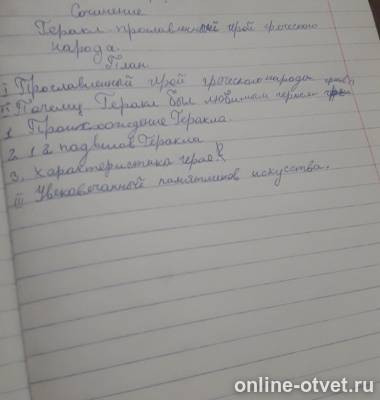 Сочинение
Геракл прославленный герой греческого
народа.
План
I Прославленный герой греческого народа
II Почему Геракл был любимым героем
1 Происхождение Геракла.
2 12 подвигов Геракла
3. Характеристика героя
III Увековечанный памятников искусства.
online-otvet.ru